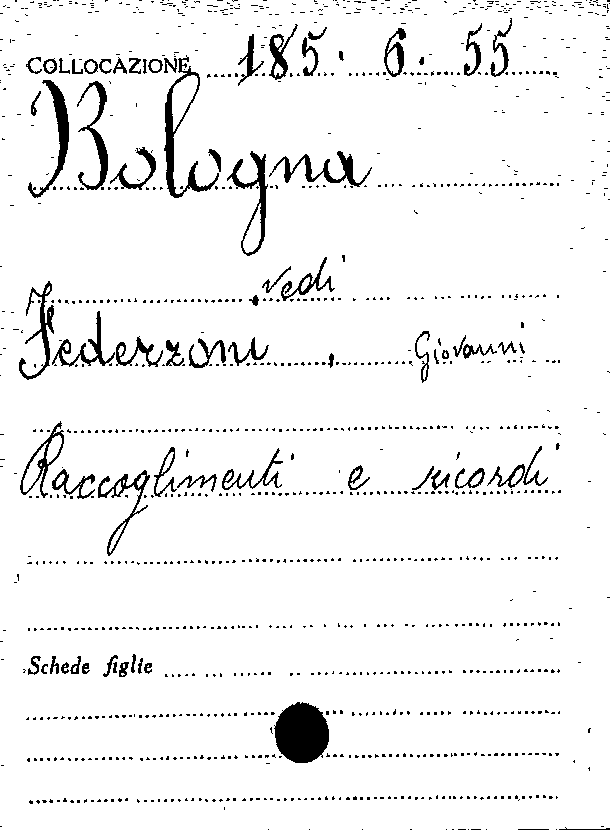 COLLOCAZIONE 185. 6. 55
Bologna
vedi
Federzoni, Giovanni
Raccoglimenti e ricordi
Schede figlie